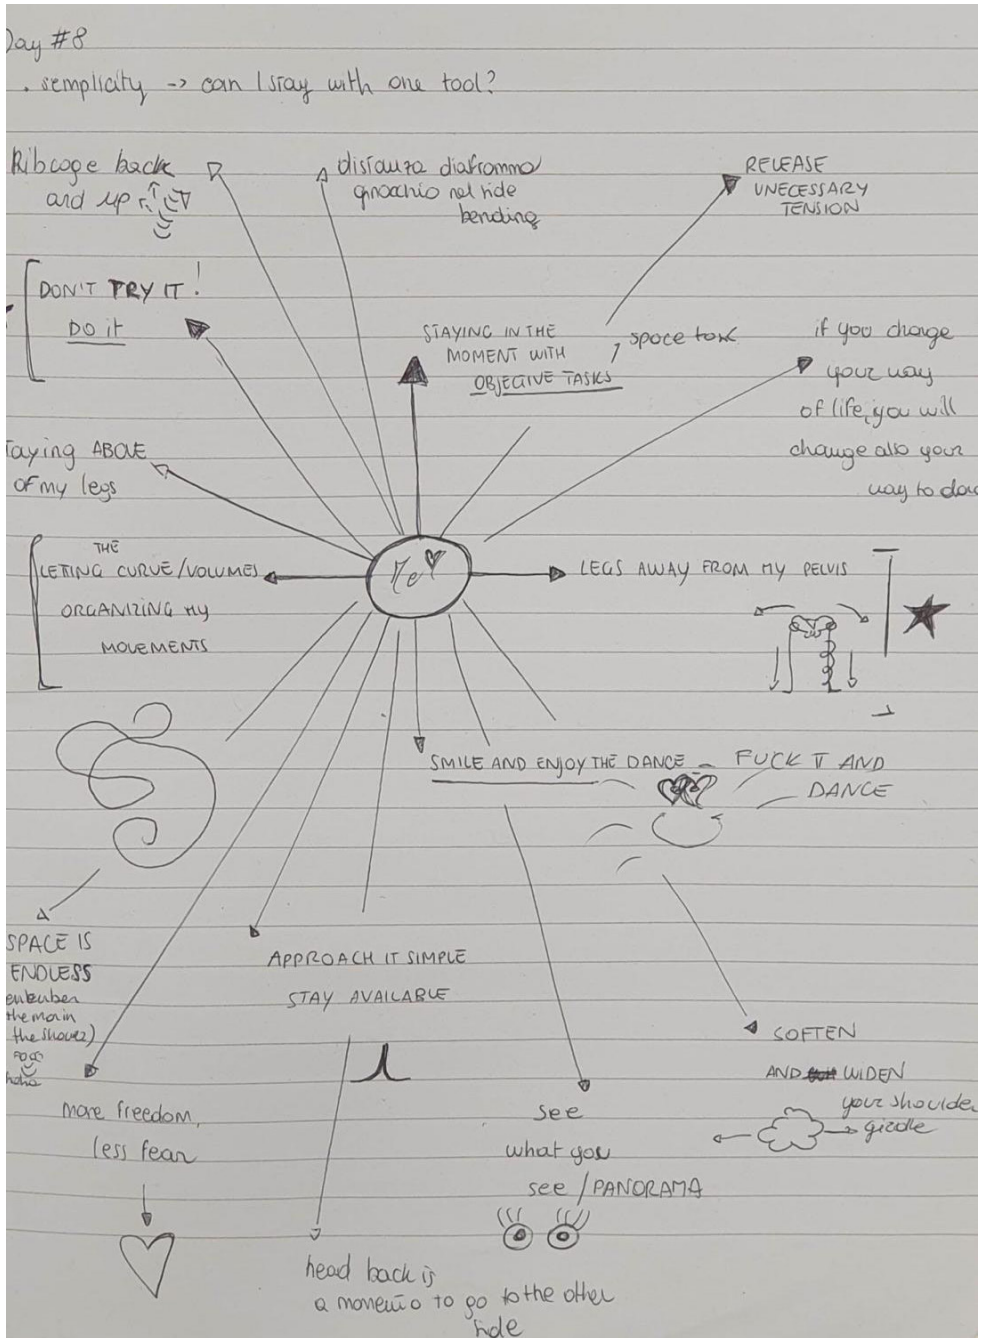 Day #8
. semplicity -> can I stay with one tool?
Ribcage back
and up
distanza diaframma
ginocchio nel side
bending
RELEASE
UNECESSARY
TENSION
DON'T TRY IT!
DO it
STAYING IN THE
MOMENT WITH
OBJECTIVE TASKS
space task
if you change
your way
of life, you will
change also your
way to dan
taying ABOVE
OF my legs
Me
THE
LETING CURVE/VOLUMES
ORGANIZING MY
MOVEMENTS
LEGS AWAY FROM MY PELVIS
SMILE AND ENJOY THE DANCE
FUCK IT AND
DANCE
SPACE IS
ENDLESS
the man in
the shower)
haha
APPROACH IT SIMPLE
STAY AVAILABLE
SOFTEN
AND WIDEN
your shoulder
girdle
more freedom,
less fear
see
what you
see/PANORAMA
head back is
a momento to go to the other
side